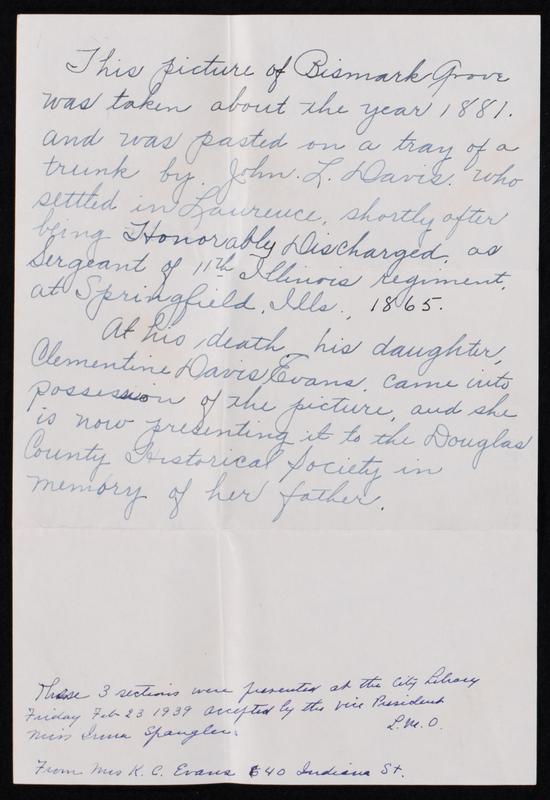 This picture of Bismark Grove
was taken about the year 1881.
and was pasted on a tray of a
trunk by John. L. Davis. who
settled in Lawrence, shortly after
being Honorably Discharged, as
Sergeant of 11th Illinois regiment,
at Springfield, Ills., 1865.
At his death, his daughter,
Clementine Davis Evans, came into
possession of the picture, and she
is now presenting it to the Douglas
County Historical Society in
memory of her father.
These 3 sections were presented at the City Library
Friday Feb 23 1939 accepted by the vice President
Miss Irma Spangler.
L.M.O.
From Mrs K. C. Evans 640 Indiana St.